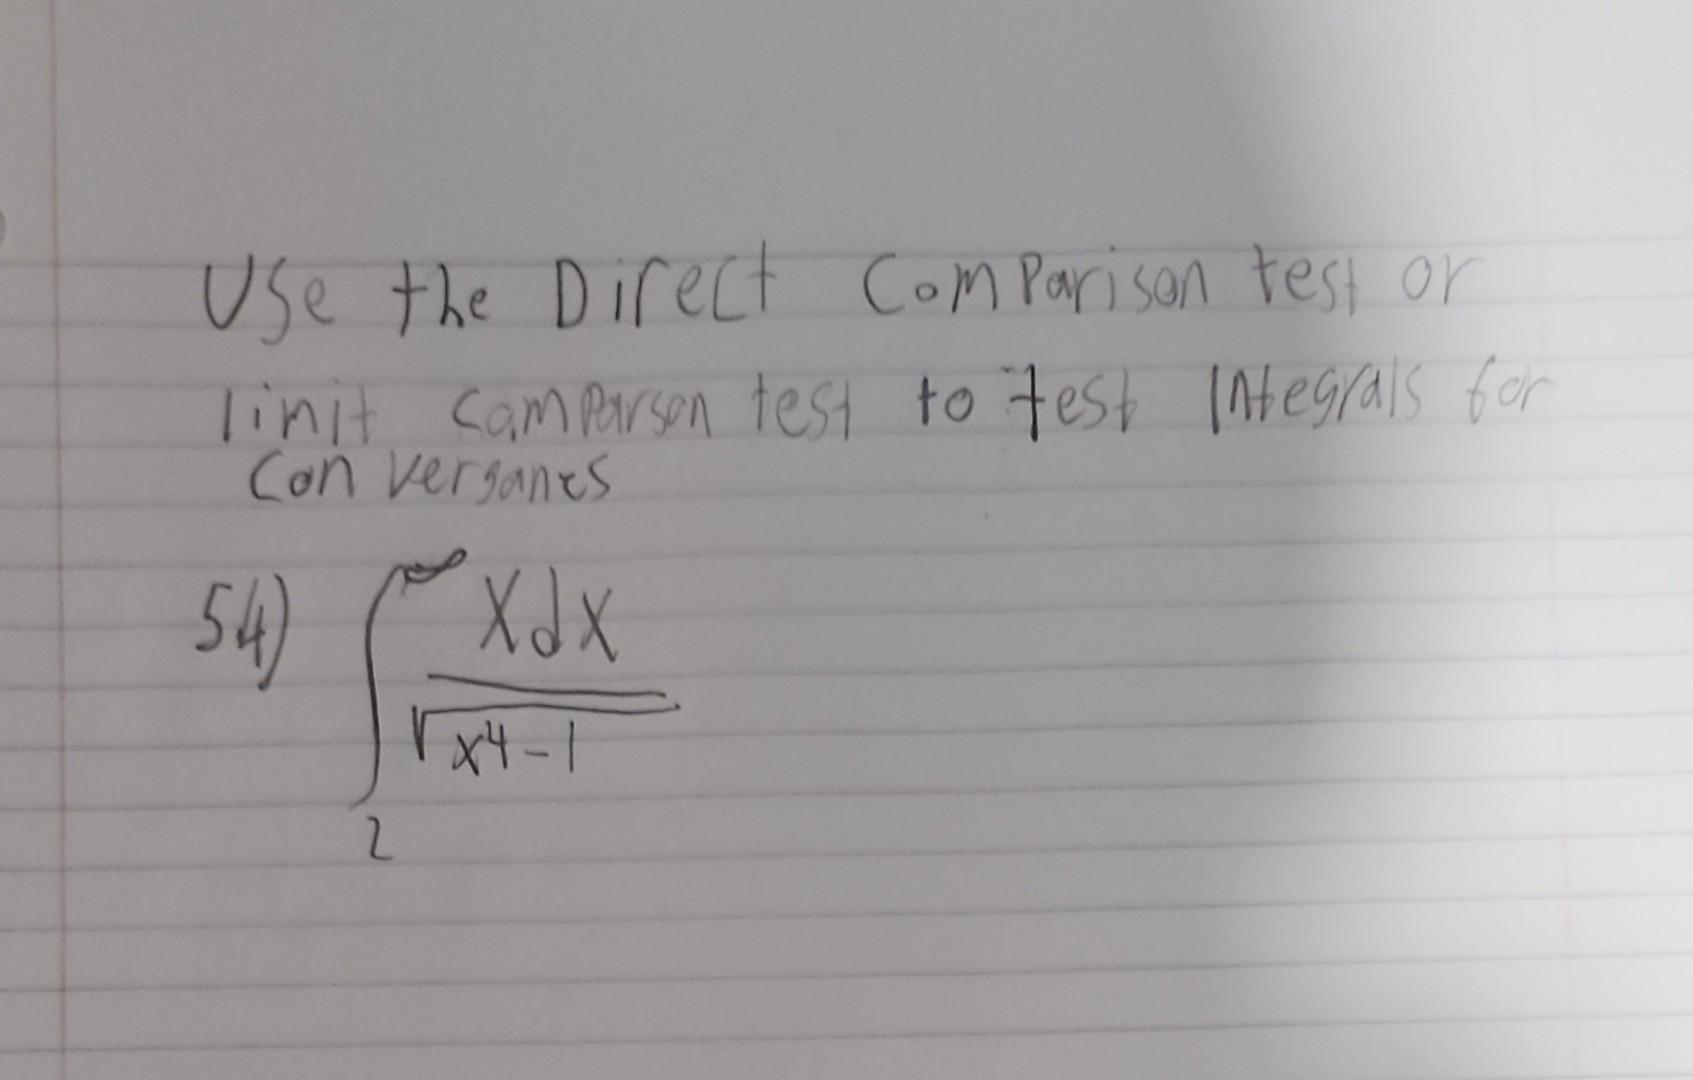 Use the Direct Comparison test or
linit camparson test to test Integrals for
Con verganes
54) ∫ ∞ xdx
√x⁴-1
2